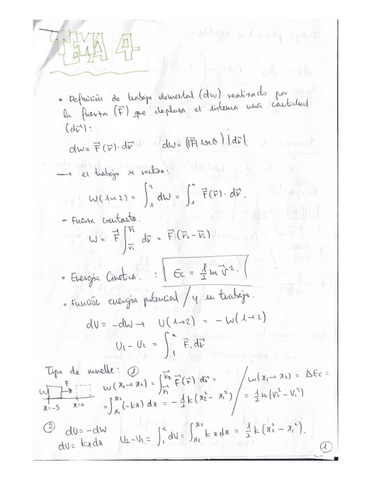 TEMA 4-
• Definición de trabajo elemental (dw) realizado por
la fuerza (F⃗) que desplaza el sistema una cantidad
(dr⃗):
dw = F⃗(r⃗)·dr⃗   dw = (|F⃗| cosθ)|dr⃗|
→ el trabajo
W(1→2) = ∫₁² dW = ∫₁² F⃗(r⃗)·dr⃗.
- Fuerza constante
W = F⃗ ∫ dr⃗ = F⃗(r⃗₂-r⃗₁)
• Energía Cinética: Ec = 1/2 m v⃗².
• Función energía potencial / y su trabajo.
dU = -dW → U(1→2) = -W(1→2)
U₁ - U₂ = ∫₁² F⃗·dr⃗
Tipo de muelle: ①
W F
x=-5 x=0
W(x₁→x₂) = ∫ F⃗(r⃗) dr⃗ =
= ∫ (-kx) dx = -1/2 k(x₂² - x₁²)
W(x₁→x₂) = ΔEc =
= 1/2 m(V₂² - V₁²)
② dU = -dW
dU = kxdx
U₂-U₁ = ∫₁² dU = ∫ kxdx = 1/2 k(x₂² - x₁²).
①